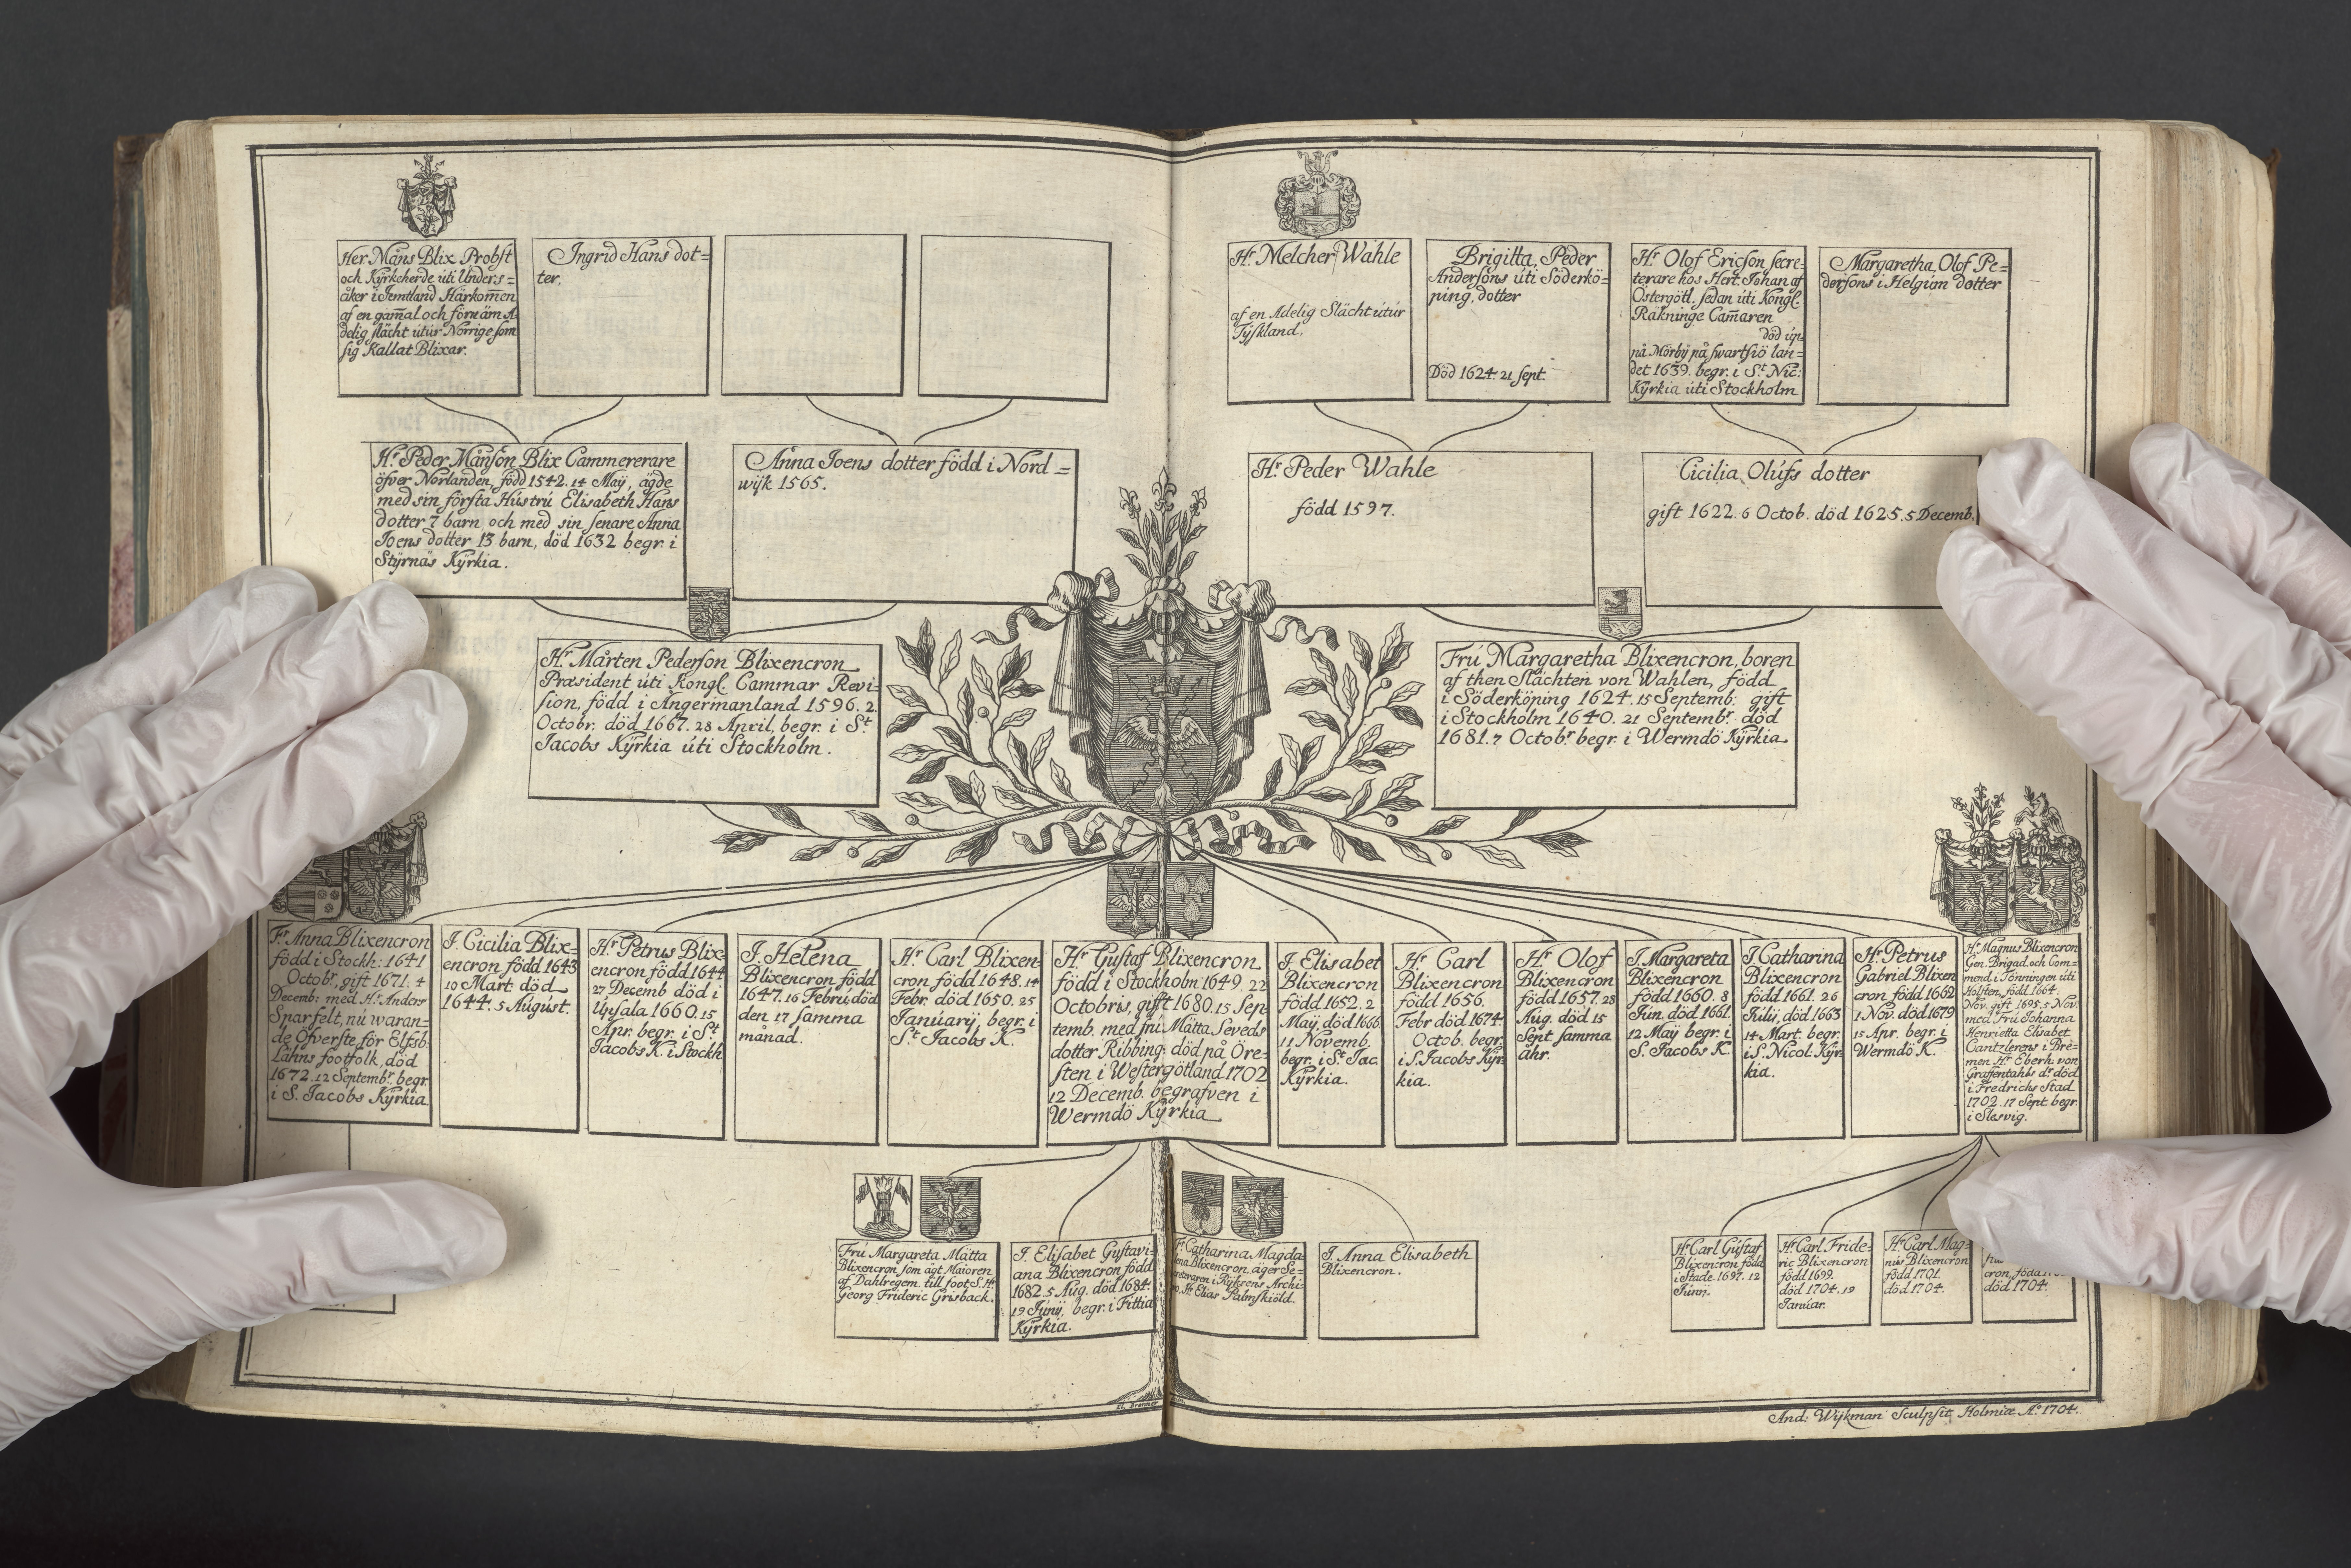 Her Måns Blix Probst
och Kÿrkcherde úti Únders=
åker i Jemtland Härkom̅en
af en gam̅al och förnäm A
delig slächt útúr Norrige som
sig Kallat Blixar.
Ingrid Hans dot=
ter.
Hr. Melcher Wahle
af en Adelig Slächt útúr
Tÿskland.
Brigitta, Peder
Andersons úti Söderkö=
ping, dotter
Död 1624. 21 sept.
Hr. Olof Ericson secre=
terare hos Hert. Johan af
Östergötl. sedan úti Kongl.
Räkninge Cam̅aren
död úp
på Mörbÿ på swartsiö lan=
det 1639. begr. i St. Nic:
Kÿrkia úti Stockholm
Margaretha, Olof Pe=
dersons i Helgúm dotter
Hr. Peder Månson Blix Cammererare
öfver Norlanden, född 1542. 14 Maÿ, ägde
med sin första Hústrú Elisabeth Hans
dotter 7 barn, och med sin senare Anna
Joens dotter 13 barn, död 1632 begr. i
Stÿrnäs Kÿrkia.
Anna Joens dotter född i Nord=
wÿk 1565.
Hr. Peder Wahle
född 1597.
Cicilia Olúfs dotter
gift 1622. 6 Octob. död 1625. 5 Decemb.
Hr. Mårten Pederson Blixencron
Præsident úti Kongl. Cammar Revi-
sion, född i Ångermanland 1596. 2
Octobr. död 1667. 28 April, begr. i St.
Jacobs Kÿrkia úti Stockholm.
Frú Margaretha Blixencron, boren
af then Slächten von Wahlen, född
i Söderköping 1624. 15 Septemb: gift
i Stockholm 1640. 21 Septembr. död
1681. 7 Octobr. begr. i Wermdö Kÿrkia
Fr. Anna Blixencron
född i Stockh: 1641
Octobr. gift 1671. 4
Decemb: med Hr. Anders
Sparfelt, nú waran-
de Öfverste för Elfsb.
Lähns footfolk, död
1672. 12 Septembr. begr.
i S. Jacobs Kÿrkia
J. Cicilia Blix-
encron född 1643
10 Mart. död
1644. 5 Aúgúst.
Hr. Petrus Blix-
encron född 1644
27 Decemb död i
Úpsala 1660. 15
Apr. begr. i St
Jacobs K. i Stockh
J. Helena
Blixencron född
1647. 16 Febrú. död
den 17 samma
månad.
Hr. Carl Blixen-
cron född 1648. 14
Febr. död 1650. 25
Janúarÿ, begr. i
St. Jacobs K.
Hr. Gústaf Blixencron
född i Stockholm 1649. 22
Octobris, gifft 1680. 15 Sep
temb. med frú Mätta Seveds
dotter Ribbing: död på Öre-
sten i Westergötland 1702
12 Decemb. begrafven i
Wermdö Kÿrkia
J. Elisabet
Blixencron
född 1652. 2
Maÿ, död 1666.
11 Novemb.
begr. i St. Jac.
Kÿrkia.
Hr. Carl
Blixencron
född 1656.
Febr död 1674.
Octob. begr.
i S. Jacobs Kÿr
kia.
Hr. Olof
Blixencron
född 1657. 28
Aúg. död 15
Sept samma
åhr.
J. Margareta
Blixencron
född 1660. 8
Jún. död 1661.
12 Maÿ begr. i
S. Jacobs K.
J. Catharina
Blixencron
född 1661. 26
Júlÿ, död 1663
14 Mart. begr.
i S. Nicol. Kÿr
kia.
Hr. Petrus
Gabriel Blixen
cron född 1662
1 Nov. död 1679
15 Apr. begr. i
Wermdö K.
Hr. Magnus Blixencron
Gen. Brigad. och Com-
mend. i Tönningen úti
Holsten, född 1664.
Nov. gift 1695. 5 Nov.
med Frú Johanna
Henrietta Elisabet
Cantzlerens i Bre-
men Hr. Eberh. von
Graffentahls dr. död
i Fredrichs Stad
1702. 17 Sept. begr.
i Slesvig.
Frú Margareta Mätta
Blixencron, som ägt Maioren
af Dahlregem. till foot S. Hr
Georg Frideric Grisback.
J. Elisabet Gústavi-
ana Blixencron född
1682. 5 Aúg. död 1684.
19 Júnÿ, begr. i Fittia
Kÿrkia.
F. Catharina Magda
lena Blixencron, äger Se=
creteraren i Rÿksens Archi-
vo, Hr. Elias Palmskiöld.
J. Anna Elisabeth
Blixencron.
Hr. Carl Gústaf
Blixencron född
i Stade 1697. 12
Júnÿ.
Hr. Carl Fride-
ric Blixencron
född 1699.
död 1704. 19
Janúar.
Hr. Carl Mag-
nús Blixencron
född 1701.
död 1704.
cron, född
död 1704.
And: Wÿkman Sculpsit Holmiæ Ao. 1704.